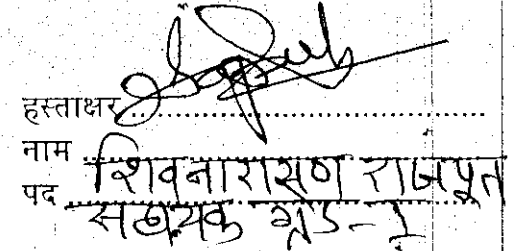 हस्ताक्षर
नाम शिवनारायण राजपूत
पद सहायक ग्रेड-1